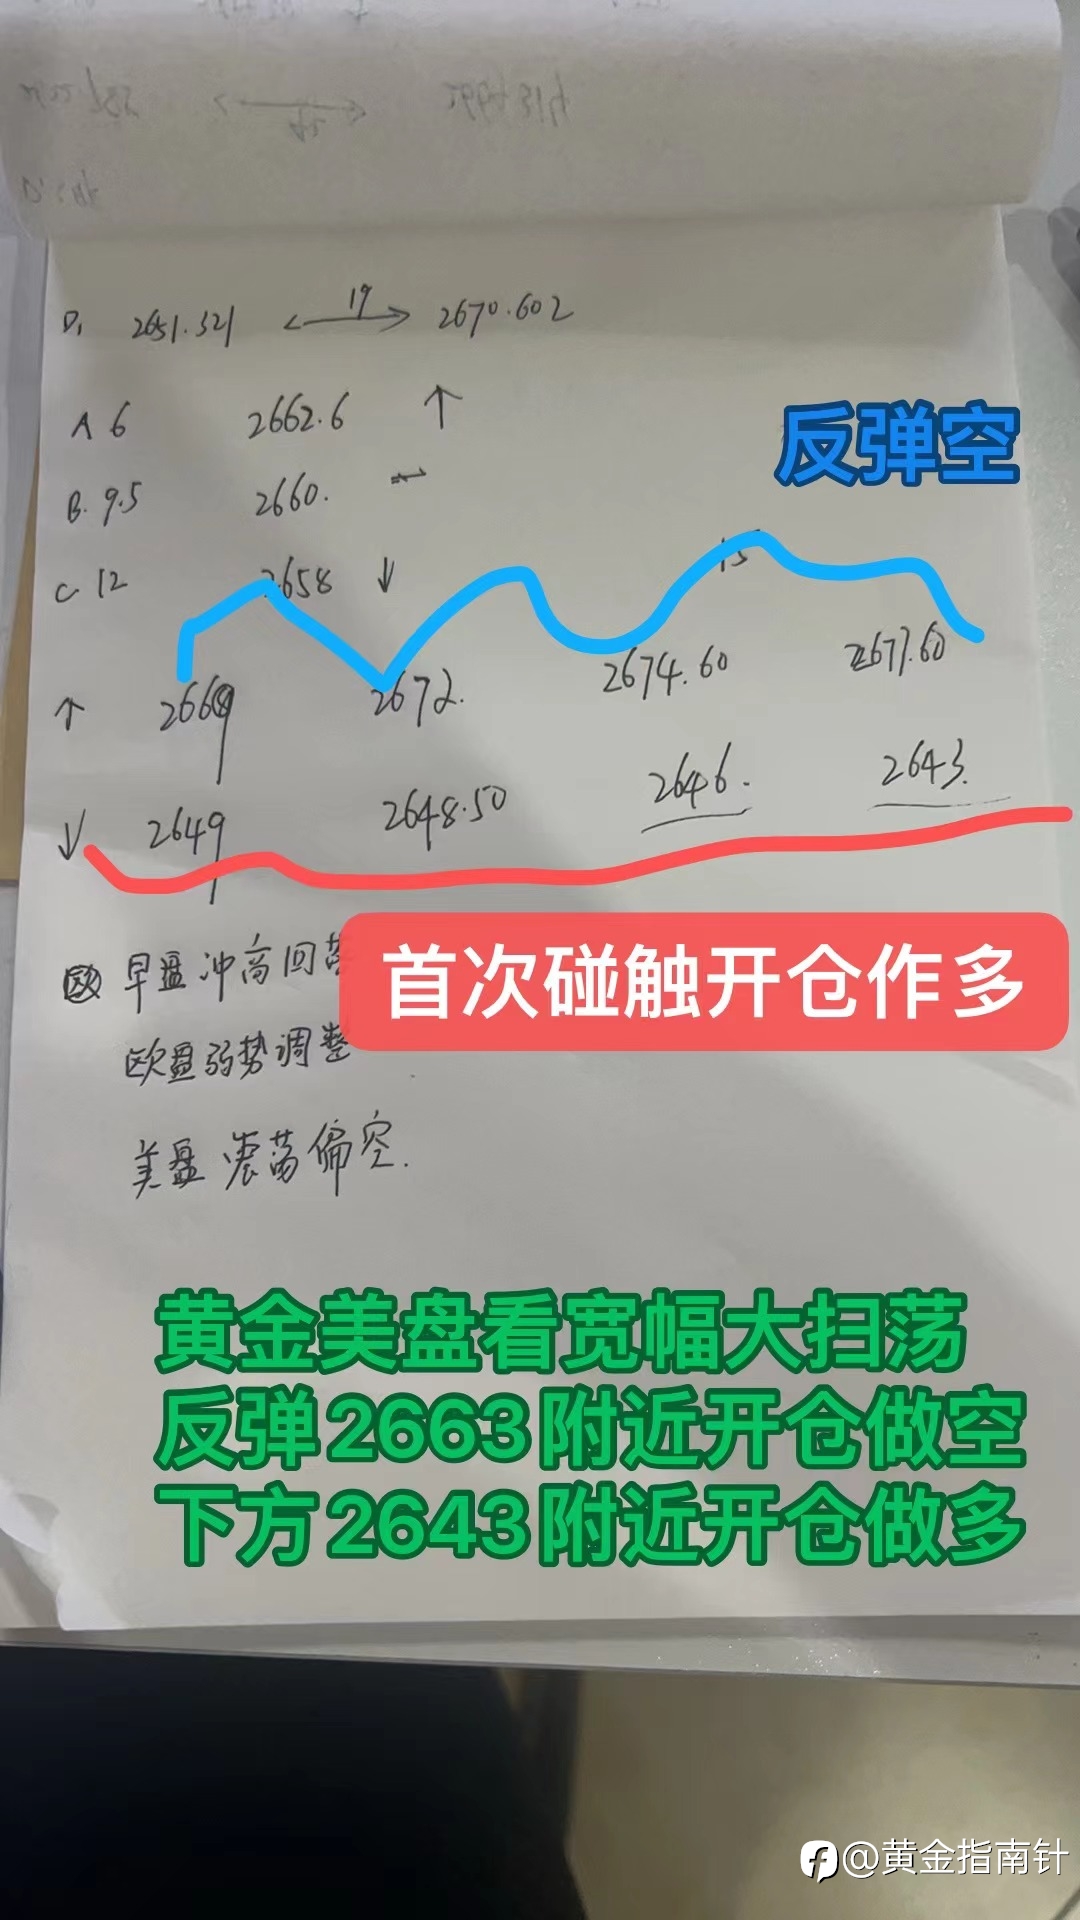 D, 2651.321 19 2670.602
A 6 2662.6 ↑
反弹空
B. 9.5 2660.
C 12 2658 ↓
15
↑ 2669 2672. 2674.60 2677.60
↓ 2649 2648.50 2646. 2643.
欧 早盘冲高回落
首次碰触开仓作多
欧盘弱势调整
美盘震荡偏空.
黄金美盘看宽幅大扫荡
反弹2663附近开仓做空
下方2643附近开仓做多
@黄金指南针